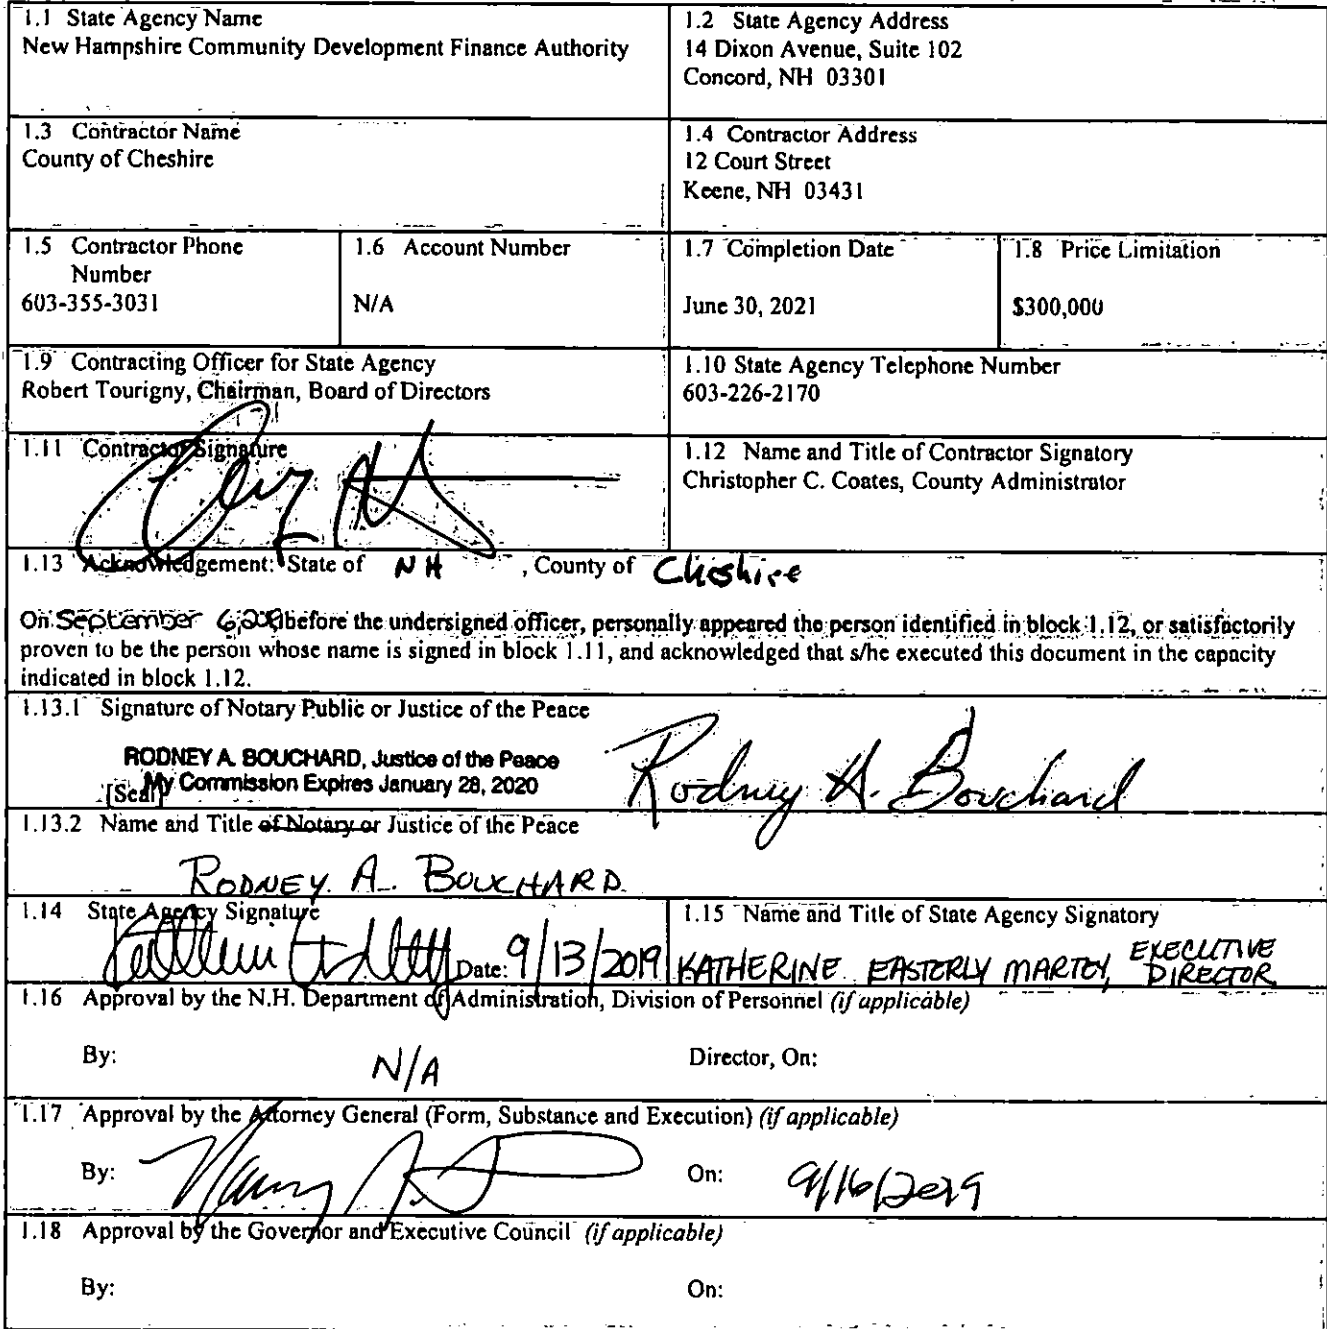 1.1 State Agency Name
New Hampshire Community Development Finance Authority
1.2 State Agency Address
14 Dixon Avenue, Suite 102
Concord, NH 03301
1.3 Contractor Name
County of Cheshire
1.4 Contractor Address
12 Court Street
Keene, NH 03431
1.5 Contractor Phone
Number
603-355-3031
1.6 Account Number
N/A
1.7 Completion Date
June 30, 2021
1.8 Price Limitation
$300,000
1.9 Contracting Officer for State Agency
Robert Tourigny, Chairman, Board of Directors
1.10 State Agency Telephone Number
603-226-2170
1.11 Contractor Signature
1.12 Name and Title of Contractor Signatory
Christopher C. Coates, County Administrator
1.13 Acknowledgement: State of NH , County of Cheshire
On September 6, 2019 before the undersigned officer, personally appeared the person identified in block 1.12, or satisfactorily
proven to be the person whose name is signed in block 1.11, and acknowledged that s/he executed this document in the capacity
indicated in block 1.12.
1.13.1 Signature of Notary Public or Justice of the Peace
RODNEY A. BOUCHARD, Justice of the Peace
My Commission Expires January 28, 2020
[Seal]
Rodney A. Bouchard
1.13.2 Name and Title of Notary or Justice of the Peace
RODNEY A. BOUCHARD
1.14 State Agency Signature
Date: 9/13/2019
1.15 Name and Title of State Agency Signatory
KATHERINE EASTERLY MARTEY, EXECUTIVE
DIRECTOR
1.16 Approval by the N.H. Department of Administration, Division of Personnel (if applicable)
By: N/A Director, On:
1.17 Approval by the Attorney General (Form, Substance and Execution) (if applicable)
By: On: 9/16/2019
1.18 Approval by the Governor and Executive Council (if applicable)
By: On: